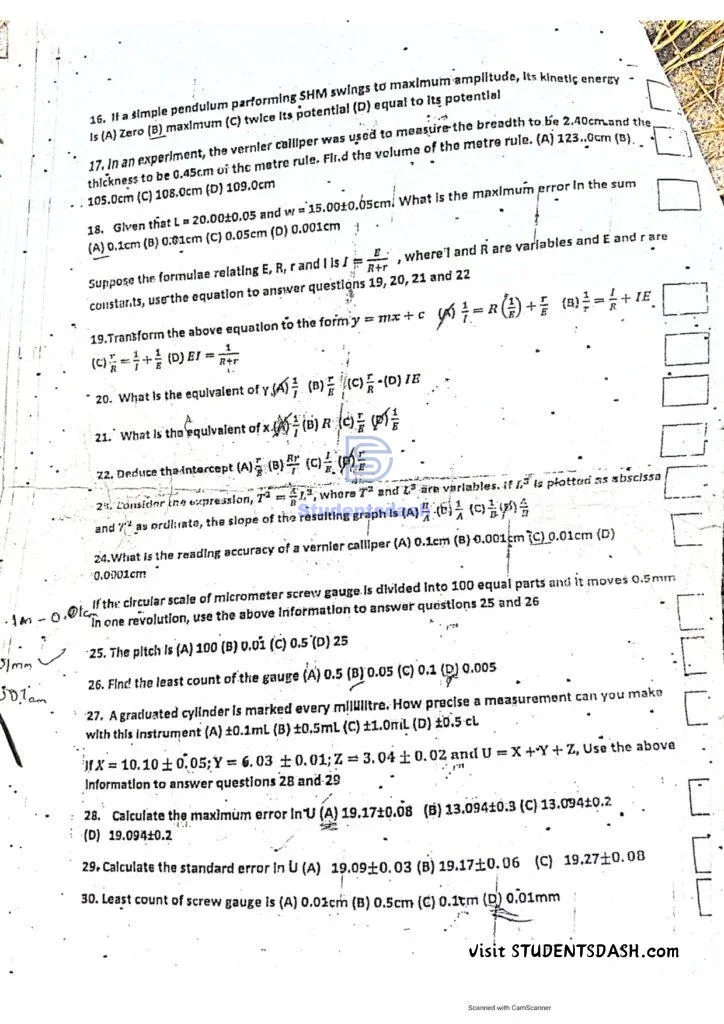 16. If a simple pendulum parforming SHM swings to maximum amplitude, its kinetic energy
is (A) Zero (B) maximum (C) twice its potential (D) equal to its potential
17. In an experiment, the vernier calliper was used to measure the breadth to be 2.40cm and the
thickness to be 0.45cm of the metre rule. Find the volume of the metre rule. (A) 123..0cm (B)
105.0cm (C) 108.0cm (D) 109.0cm
18. Given that L = 20.00±0.05 and w = 15.00±0.05cm. What is the maximum error in the sum
(A) 0.1cm (B) 0.01cm (C) 0.05cm (D) 0.001cm
Suppose the formulae relating E, R, r and I is I = E/(R+r) , where I and R are variables and E and r are
constants, use the equation to answer questions 19, 20, 21 and 22
19.Transform the above equation to the form y = mx + c (A) 1/I = R(1/E) + r/E (B) 1/r = I/R + IE
(C) r/R = 1/I + 1/E (D) EI = 1/(R+r)
20. What is the equivalent of y (A) 1/I (B) r/E (C) r/R (D) IE
21. What is the equivalent of x (A) 1/I (B) R (C) r/E (D) 1/E
22. Deduce the intercept (A) (B) Rr/I (C) I/E (D) r/E
Studentsdash
23. Consider the expression, T² = L³, where T² and L³ are variables. If L³ is plotted as abscissa
and T² as ordinate, the slope of the resulting graph is (A) B/A (B) 1/A (C) 1/B (D) A/B
24.What is the reading accuracy of a vernier calliper (A) 0.1cm (B) 0.001cm (C) 0.01cm (D)
0.0001cm
If the circular scale of micrometer screw gauge is divided into 100 equal parts and it moves 0.5mm
in one revolution, use the above information to answer questions 25 and 26
25. The pitch is (A) 100 (B) 0.01 (C) 0.5 (D) 25
26. Find the least count of the gauge (A) 0.5 (B) 0.05 (C) 0.1 (D) 0.005
27. A graduated cylinder is marked every millilitre. How precise a measurement can you make
with this instrument (A) ±0.1mL (B) ±0.5mL (C) ±1.0mL (D) ±0.5 cL
If X = 10.10 ± 0.05; Y = 6.03 ± 0.01; Z = 3.04 ± 0.02 and U = X + Y + Z, Use the above
information to answer questions 28 and 29
28. Calculate the maximum error in U (A) 19.17±0.08 (B) 13.094±0.3 (C) 13.094±0.2
(D) 19.094±0.2
29. Calculate the standard error in U (A) 19.09±0.03 (B) 19.17±0.06 (C) 19.27±0.08
30. Least count of screw gauge is (A) 0.01cm (B) 0.5cm (C) 0.1cm (D) 0.01mm
visit STUDENTSDASH.com
Scanned with CamScanner